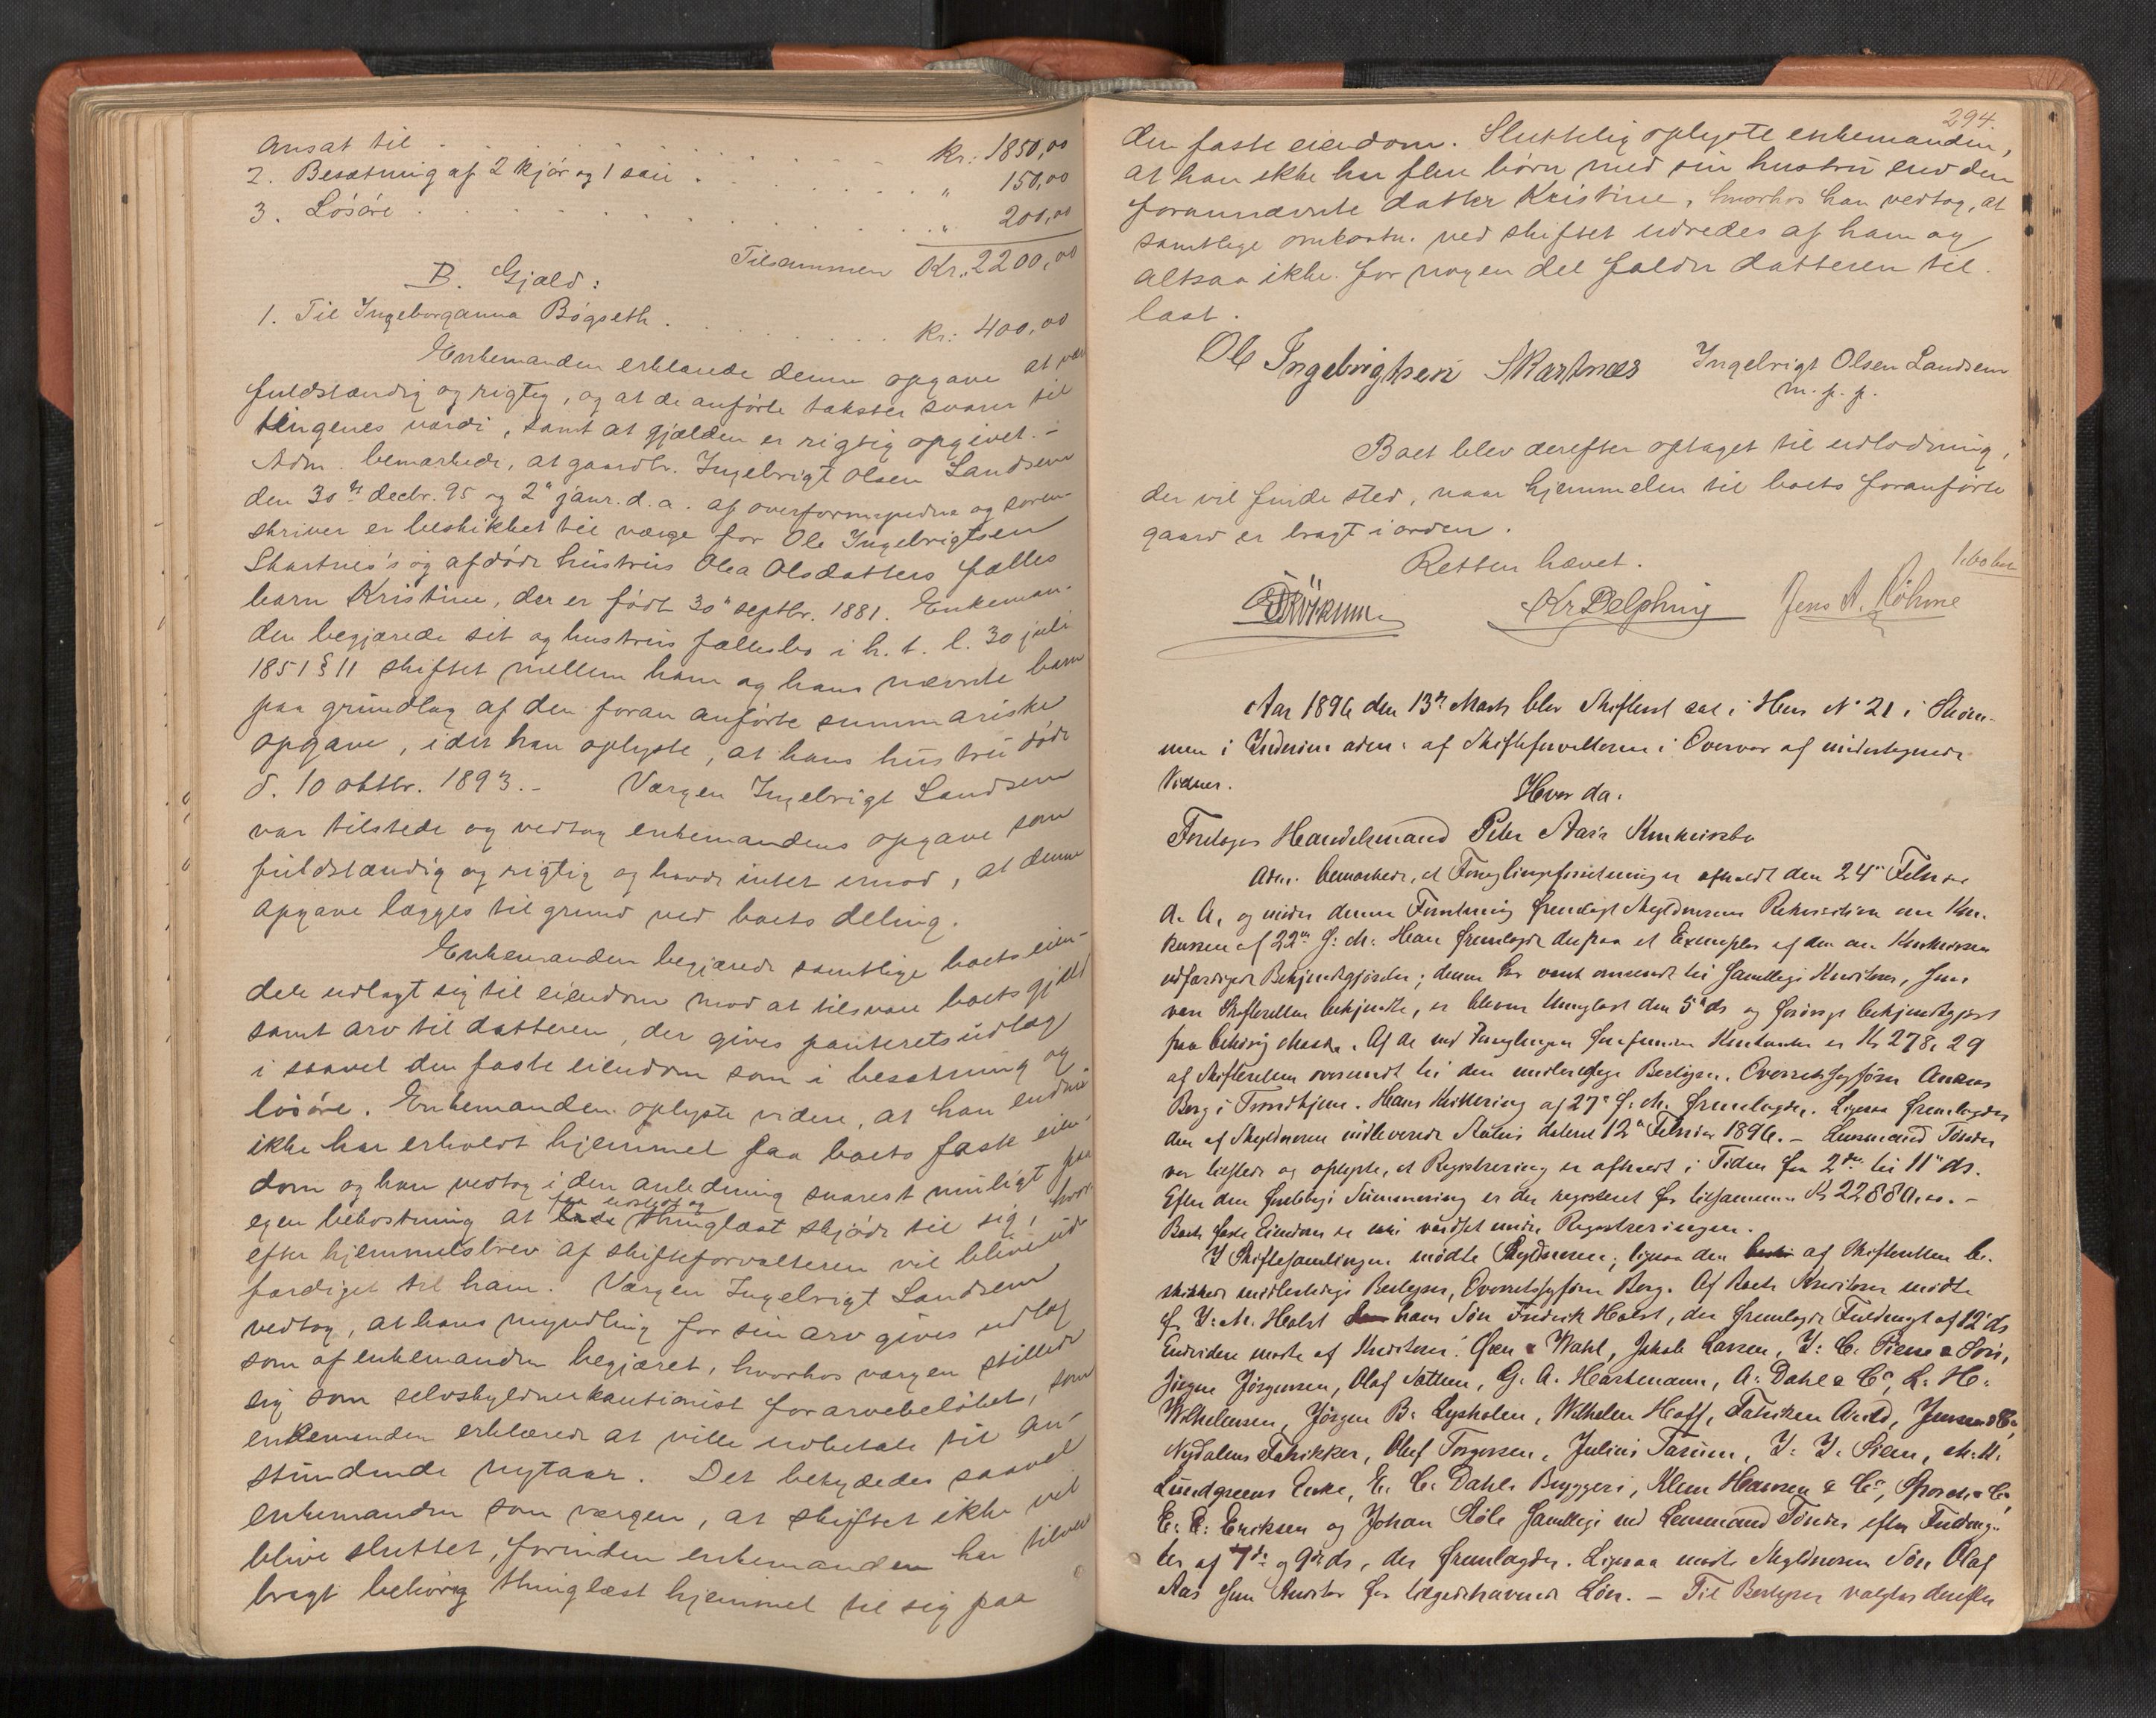 ansat til . . . . kr. 1850,00
2. Besætning af 2 kjør og 1 sau . . . . " 150,00
3. Løsøre . . . . " 200,00
Tilsammen Kr. 2200,00
B. Gjæld:
1. Til Ingeborganna Bøgseth . . . . kr. 400,00
Enkemanden erklærede denne opgave at være
fuldstændig og rigtig, og at de anførte takster svarer til
tingenes værdi, samt at gjælden er rigtig opgivet. -
Adm. bemærkede, at gaardbr. Ingebrigt Olsen Landsem
den 30te decbr. 95 og 2den janr. d.a. af overformynderi og soren-
skriver er beskikket til værge for Ole Ingebrigtsen
Skartnes's og afdøde hustrus Olea Olsdatters fælles
barn Kristine, der er født 30te septbr. 1881. Enkeman-
den begjærede sit og hustrus fællesbo i h. t. l. 30 juli
1851 § 11 skiftet mellem ham og hans nævnte barn
paa grundlag af den foran anførte summariske
opgave, idet han oplyste, at hans hustru døde
d. 10 oktbr. 1893. - Værgen Ingebrigt Landsem
var tilstede og vedtog enkemandens opgave som
fuldstændig og rigtig og havde intet imod, at denne
opgave lægges til grund ved boets deling.
Enkemanden begjærede samtlige boets eien-
dele udlagt sig til eiendom mod at tilsvare boets gjæld
samt arv til datteren, der gives panteretsudlæg
i saavel den faste eiendom som i besætning og
løsøre. Enkemanden oplyste videre, at han endnu
ikke har erholdt hjemmel paa boets faste eien-
dom og han vedtog i den anledning snarest muligt paa
egen bekostning at faa udstedt og thinglæst skjøde til sig, hvor-
efter hjemmelsbrev af skifteforvalteren vil blive ud-
færdiget til ham. Værgen Ingebrigt Landsem
vedtog, at hans myndling for sin arv gives udlæg
som af enkemanden begjæret, hvorhos værgen stillede
sig som selvskyldnerkautionist for arvebeløbet, som
enkemanden erklærede at ville udbetale til an-
stundende nytaar. Det betydedes saavel
enkemanden som værgen, at skiftet ikke vil
blive sluttet, forinden enkemanden har tilveie-
bragt behørig thinglæst hjemmel til sig paa
294.
den faste eiendom. Sluttelig oplyste enkemanden,
at han ikke har flere børn med sin hustru end den
forannævnte datter Kristine, hvorhos han vedtog, at
samtlige omkostn. ved skiftet udredes af ham og
altsaa ikke for nogen del falder datteren til
last.
Ole Ingebrigtsen Skartnæs Ingebrigt Olsen Landsem
m. p. p.
Boet blev derefter optaget til udlodning,
der vil finde sted, naar hjemmelen til boets foranførte
gaard er bragt i orden.
Retten hævet.
Kr Delphin Jens A. Røhme
Aar 1896 den 13de Marts blev Skifteret sat i Hus No 21 i Skom-
men i Inderøen adm. af Skifteforvalteren i Overvær af undertegnede
Vidner.
Hvor da:
Foretoges Handelsmand Peter Aas's Konkursbo
Adm. bemærkede, at Forseglingsforretning er afholdt den 24de Februar
d. A. og under denne Forretning fremlagt Skyldnerens Rekvisition om Kon-
kursen af 22de f. M. Han fremlagde derpaa et Exemplar af den om Konkursen
udfærdigede Bekjendtgjørelse; denne har været omsendt til samtlige Kreditorer, som
vare Skifteretten bekjendte, er bleven thinglæst den 5te ds og forøvrigt bekjendtgjort
paa behørig Maade. Af de ved Forseglingen forefundne Kontanter er Kr 278,29
af Skifteretten oversendt til den midlertidige Bestyrer, Overretssagfører Anders
Berg i Trondhjem. Hans Kvittering af 27de f. M. fremlagdes. Ligesaa fremlagdes
den af Skyldneren indleverede Status dateret 12te Februar 1896. - Lensmand Tønder
var tilstede og oplyste, at Registrering er afholdt i Tiden fra 2den til 11te ds.
Efter den foreløbige Summering er der registreret for tilsammen Kr 22880,00. -
Boets faste Eiendom er ikke værdsat under Registreringen.
I Skiftesamlingen mødte Skyldneren; ligesaa den af Skifteretten be-
skikkede midlertidige Bestyrer, Overretssagfører Berg. Af Boets Kreditorer mødte
for I. M. Holst hans Søn Fredrik Holst, der fremlagde Fuldmagt af 12te ds
Endvidere mødte af Kreditorer: Gjær & Wahl, Jakob Larsen, I. C. Piene & Søn,
Jørgen Jørgensen, Olaf Sættem, G. A. Hartmann, A. Dahl & Co, L. H.
Wilhelmsen, Jørgen B. Lysholm, Wilhelm Hoff, Fabriken Arild, Jensen & Co,
Nydalens Fabrikker, Oluf Torgersen, Julius Tasum, I. I. Siem, M. H.
Lundgreens Enke, E. C. Dahls Bryggeri, Klem Hansen & Co,
E. E. Eriksen og Johan Støle samtlige ved Lensmand Tønder efter Fuldmag-
ter af 7de og 9de ds, der fremlagdes. Ligesaa mødte Skyldnerens Søn Olaf
Aas som Kreditor for tilgodehavende Løn. - Til Bestyrer valgtes derefter